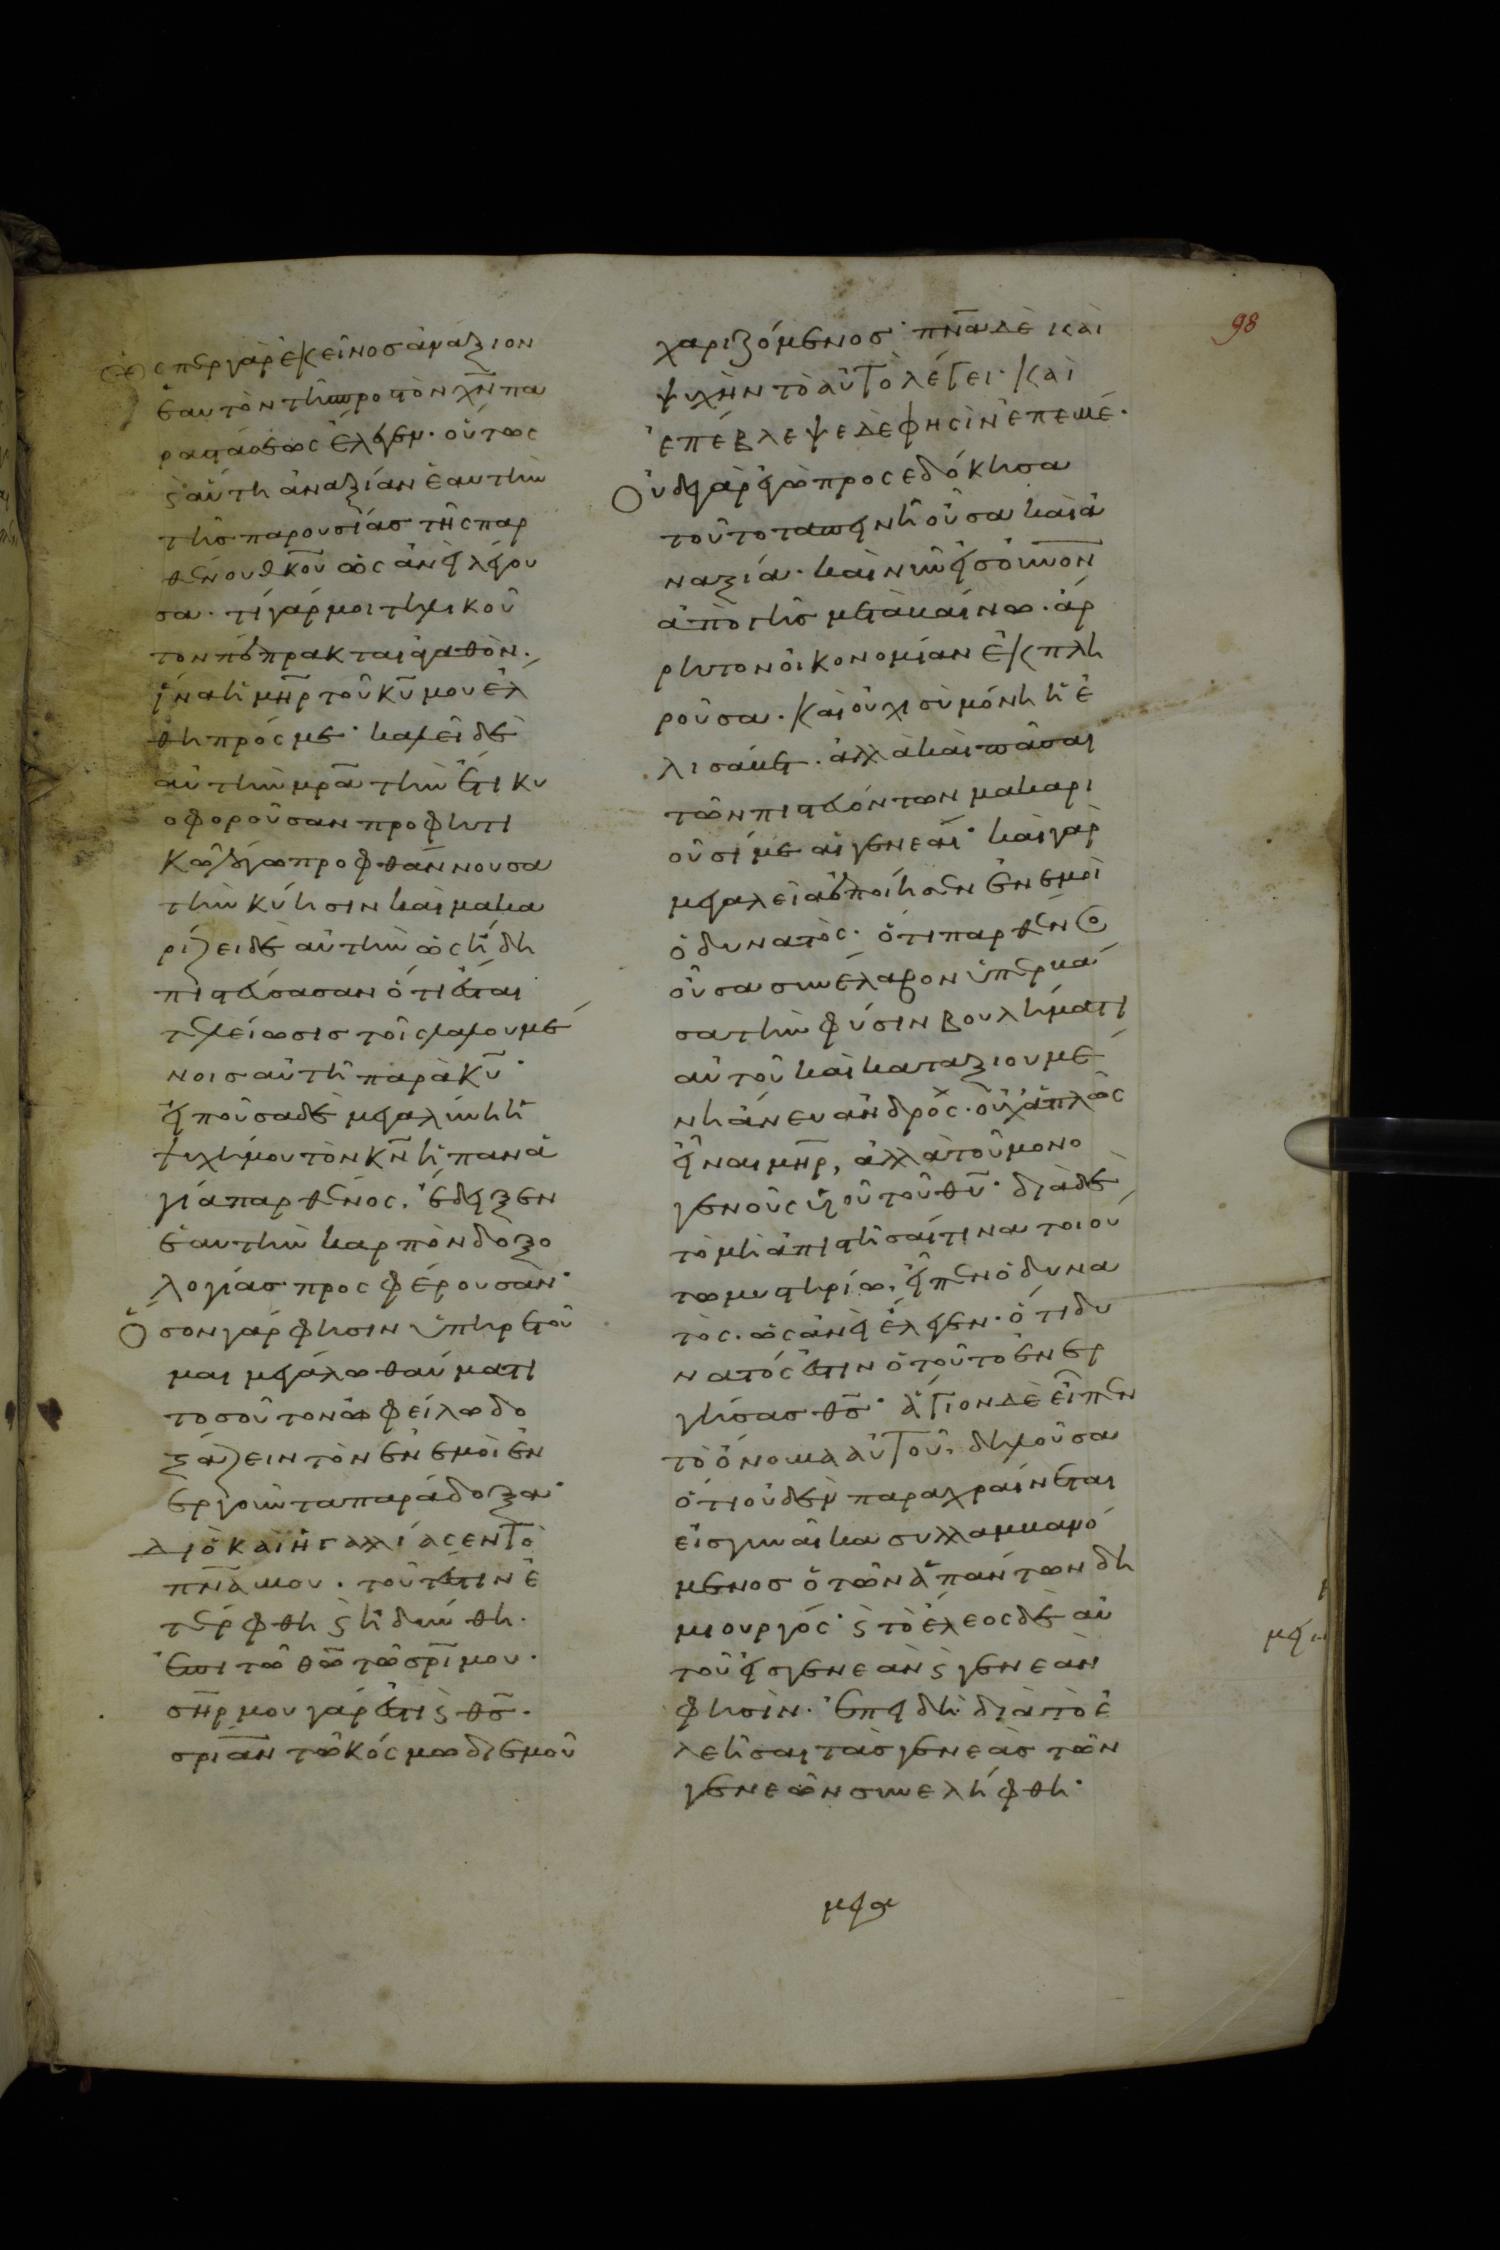 98
ὥσπερ γὰρ ἐκεῖνος ἀνάξιον
ἑαυτὸν τῆς πρὸς τὸν χν πα
ραστάσεως ἔλεγεν· οὕτως
ϛ αὕτη ἀναξίαν ἑαυτὴν
τῆς παρουσίας τῆς παρ
θένου θκου ὡς ἀνεῖ λέγου
σα· τί γάρ μοι τηλικοῦ
τον πέπρακται ἀγαθὸν·
ἵνα ἡ μηρ τοῦ κυ μου ἔλ
θη πρός με· καλεῖ δὲ
αὐτὴν μρα τὴν ἔτι κυ
οφοροῦσαν προφητι
κῶ λόγω προφθάννουσα
τὴν κύησιν καὶ μακα
ρίζει δὲ αὐτὴν ὡς ἤδη
πιστεύσασαν ὅτι ἔσται
τελείωσις τοῖς λαλουμέ
νοις αὐτῆ παρὰ κυ·
εἰποῦσα δὲ μεγαλύνει ἡ
ψυχή μου τὸν κν ἡ πανα
γία παρθένος· ἔδειξεν
ἑαυτὴν καρπὸν δοξο
λογίας προσφέρουσαν·
Ὅσον γάρ φησιν ὑπηρετοῦ
μαι μεγάλω θαύματι
τοσοῦτον ὀφείλω δο
ξάζειν τὸν ἐν ἐμοὶ ἐν
εργοῦντα παράδοξα·
διὸ καὶ ἠγαλλίασεν τὸ
πνα μου· τουτέστιν ἐ
τέρφθη ϛ ἡδύνθη·
ἐπὶ τῶ θω τῶ σρι μου·
σηρ μου γάρ ἐστι ϛ θς·
σριαν τῶ κόσμω δι' ἐμοῦ
χαριζόμενος· πνα δὲ καὶ
ψυχὴν τὸ αὐτὸ λέγει· καὶ
ἐπέβλεψε δέ φησιν ἐπ' ἐμέ·
Οὐδὲ γὰρ ἐγὼ προσεδόκησα
τοῦτο ταπεινὴ οὖσα καὶ ἀ
ναξία· καὶ νῦν εἰς οὐνον
ἀπὸ γῆς μεταβαίνω· ἄρ
ρητον οἰκονομίαν ἐκπλη
ροῦσα· καὶ οὐχὶ σὺ μόνη ἡ ἐ
λισάβετ· ἀλλὰ καὶ πᾶσαι
τῶν πιστευόντων μακαρι
οῦσί με αἱ γενεαί· καὶ γὰρ
μεγαλεῖα ἐποίησεν ἐν ἐμοὶ
ὁ δυνατὸς· ὅτι παρθένος
οὖσα συνέλαβον ὑπερβᾶ
σα τὴν φύσιν βουλήματι
αὐτοῦ καὶ καταξιουμέ
νη ἄνευ ἀνδρὸς· οὐχ ἁπλῶς
εἶναι μηρ, ἀλλὰ τοῦ μονο
γενοῦς υἱοῦ τοῦ θυ· διὰ δὲ
τὸ μὴ ἀπιστῆσαί τινα τοιού
τω μυστηρίω, εἶπεν ὁ δυνα
τὸς· ὡς ἀνεῖ ἔλεγεν· ὅτι δυ
νατός ἐστιν ὁ τοῦτο ἐνερ
γήσας θς· ἅγιον δὲ εἶπεν
τὸ ὄνομα αὐτοῦ· δηλοῦσα
ὅτι οὐδὲν παραχραίνεται
εἰς γυναῖκα συλλαμβανό
μενος ὁ τῶν ἁπάντων δη
μιουργός· ϛ τὸ ἔλεος δὲ αὐ
τοῦ εἰς γενεὰν ϛ γενεὰν
φησὶν· ἐπειδὴ διὰ τὸ ἐ
λεῆσαι τὰς γενεὰς τῶν
γενεῶν συνελήφθη·